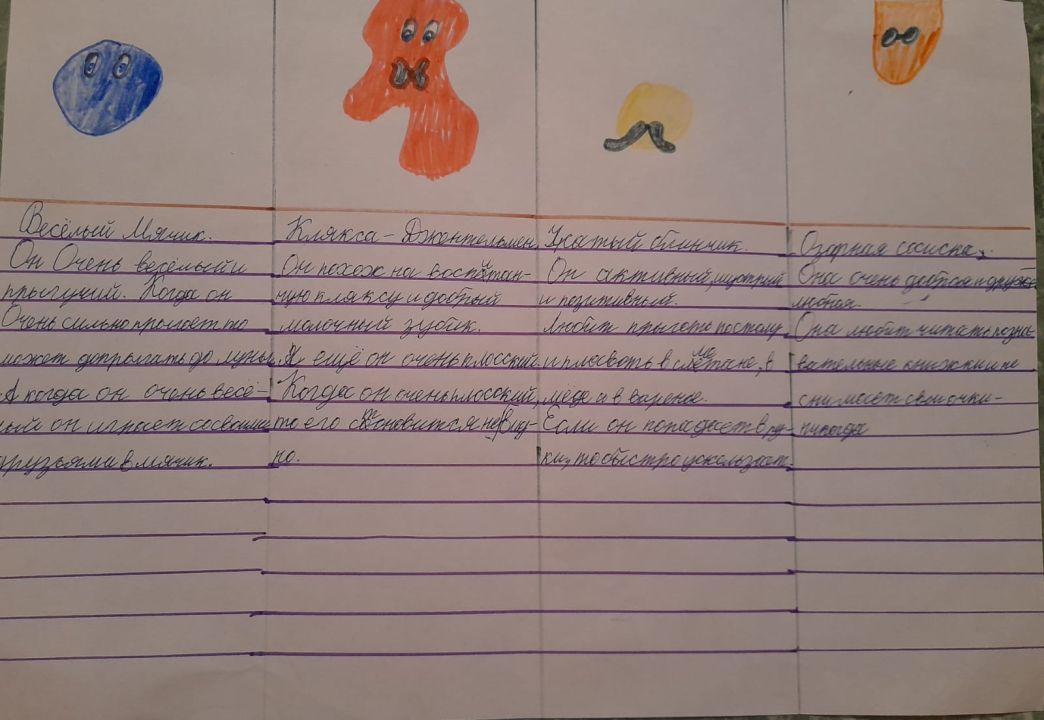 Весёлый Мячик.
Он Очень весёлый и
прыгучий. Когда он
Очень сильно прыгает то
может допрыгать до луны.
А когда он очень весё-
лый он играет со своими
друзьями в мячик.
Клякса - Джентельмен.
Он похож на воспитан-
ную кляксу и добрый
молочный зубик.
А ещё он очень плоский.
Когда он очень плоский,
то его становится не вид-
но.
Усатый блинчик.
Он активный, шустрый
и позитивный.
Любит прыгать по столу
и плавать в сметане, в
мёде и в варенье.
Если он попадает в ру-
ки, то быстро ускользает.
Озорная сосиска.
Она очень добрая и друже-
любная.
Она любит читать позна-
вательные книжки и не
снимает свои очки-
никогда